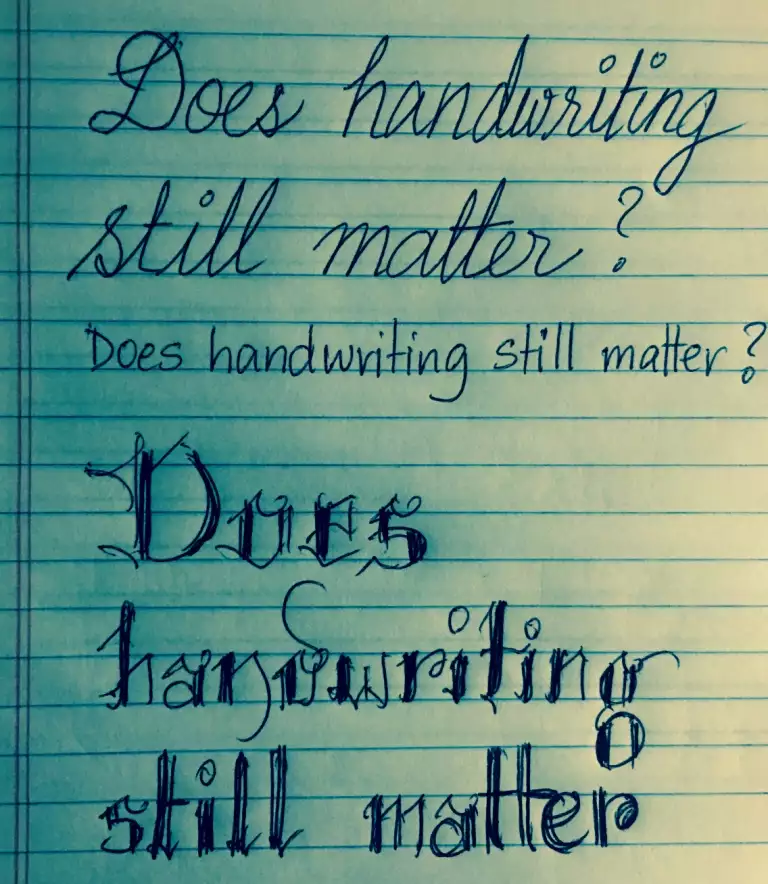 Does handwriting
still matter?
Does handwriting still matter?
Does
handwriting
still matter